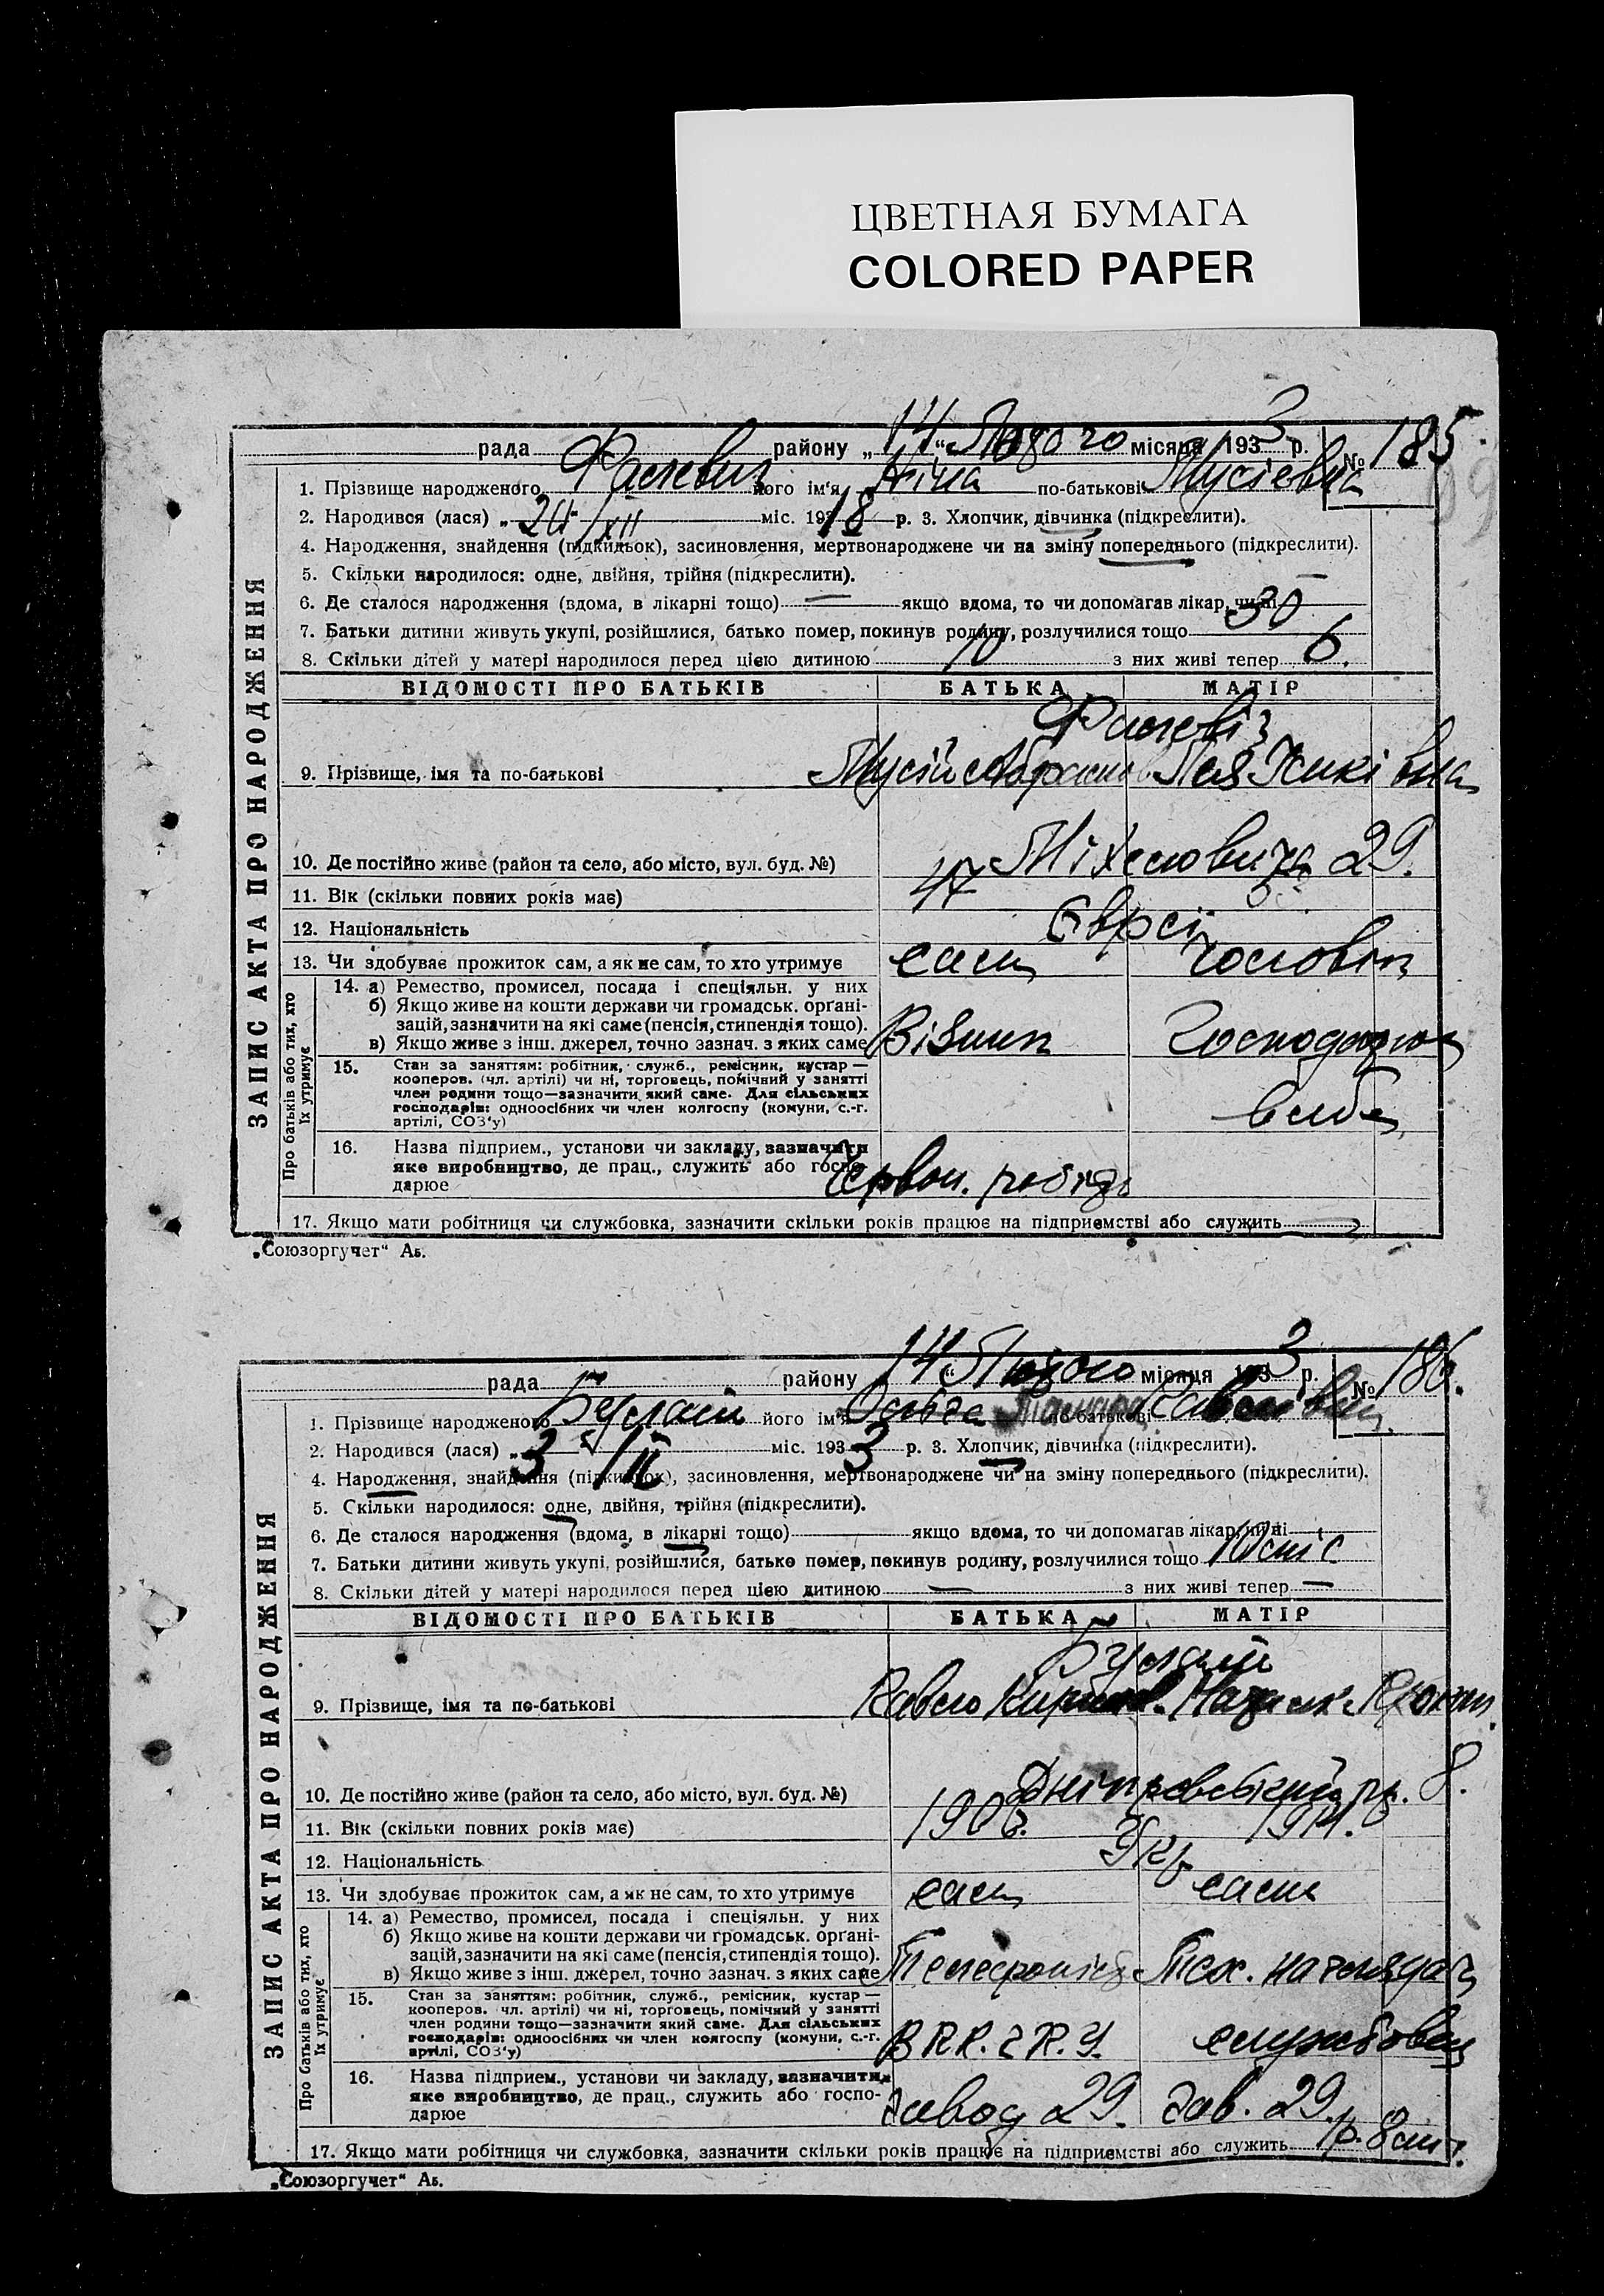 ЦВЕТНАЯ БУМАГА
COLORED PAPER
рада району „14“ Лютого місяця 1933 р. № 185
1. Прізвище народженого його ім'я Ніна по-батькові Мусієвна
2. Народився (лася) „24 / XII міс. 1918 р. 3. Хлопчик, дівчинка (підкреслити).
4. Народження, знайдення (підкидьок), засиновлення, мертвонароджене чи на зміну попереднього (підкреслити).
5. Скільки народилося: одне, двійня, трійня (підкреслити).
6. Де сталося народження (вдома, в лікарні тощо) — якщо вдома, то чи допомагав лікар, чи ні
7. Батьки дитини живуть укупі, розійшлися, батько помер, покинув родину, розлучилися тощо 30
8. Скільки дітей у матері народилося перед цією дитиною 10 з них живі тепер 6.
ВІДОМОСТІ ПРО БАТЬКІВ БАТЬКА МАТІР
9. Прізвище, імя та по-батькові Мусій Абрамов
10. Де постійно живе (район та село, або місто, вул. буд. №) 29.
11. Вік (скільки повних років має) 47
12. Національність Євреї
13. Чи здобуває прожиток сам, а як не сам, то хто утримує сам чоловік
14. а) Ремество, промисел, посада і спеціяльн. у них
б) Якщо живе на кошти держави чи громадськ. орґані-
зацій, зазначити на які саме (пенсія, стипендія тощо).
в) Якщо живе з інш. джерел, точно зазнач. з яких саме Візник
15. Стан за заняттям: робітник, служб., ремісник, кустар —
кооперов. (чл. артілі) чи ні, торговець, помічний у занятті
член родини тощо—зазначити який саме. Для сільських
господарів: одноосібних чи член колгоспу (комуни, с.-г.
артілі, СОЗ'у)
16. Назва підприєм., установи чи закладу, зазначити
яке виробництво, де прац., служить або госпо-
дарюе Червон.
17. Якщо мати робітниця чи службовка, зазначити скільки років працює на підприємстві або служить —
ЗАПИС АКТА ПРО НАРОДЖЕННЯ
Про батьків або тих, хто
їх утримує
„Союзоргучет“ Аб.
рада району „14“ Лютого місяця 1933 р. № 186.
1. Прізвище народженого його ім'я Тамара по-батькові Павлівна
2. Народився (лася) „3 / II міс. 1933 р. 3. Хлопчик, дівчинка (підкреслити).
4. Народження, знайдення (підкидьок), засиновлення, мертвонароджене чи на зміну попереднього (підкреслити).
5. Скільки народилося: одне, двійня, трійня (підкреслити).
6. Де сталося народження (вдома, в лікарні тощо) якщо вдома, то чи допомагав лікар, чи ні
7. Батьки дитини живуть укупі, розійшлися, батько помер, покинув родину, розлучилися тощо
8. Скільки дітей у матері народилося перед цією дитиною — з них живі тепер —
ВІДОМОСТІ ПРО БАТЬКІВ БАТЬКА МАТІР
9. Прізвище, імя та по-батькові Павло
10. Де постійно живе (район та село, або місто, вул. буд. №) Дніпровський 8.
11. Вік (скільки повних років має) 1906. 1911.
12. Національність Укр.
13. Чи здобуває прожиток сам, а як не сам, то хто утримує сам сама
14. а) Ремество, промисел, посада і спеціяльн. у них
б) Якщо живе на кошти держави чи громадськ. орґані-
зацій, зазначити на які саме (пенсія, стипендія тощо).
в) Якщо живе з інш. джерел, точно зазнач. з яких саме Телефоніст Тех. наглядач
15. Стан за заняттям: робітник, служб., ремісник, кустар —
кооперов. чл. артілі) чи ні, торговець, помічний у занятті
член родини тощо—зазначити який саме. Для сільських
господарів: одноосібних чи член колгоспу (комуни, с.-г.
артілі, СОЗ'у) службовец
16. Назва підприєм., установи чи закладу, зазначити
яке виробництво, де прац., служить або госпо-
дарюе завод 29. зав. 29.
17. Якщо мати робітниця чи службовка, зазначити скільки років працює на підприємстві або служить 1 р. 8 міс.
ЗАПИС АКТА ПРО НАРОДЖЕННЯ
Про батьків або тих, хто
їх утримує
„Союзоргучет“ Аб.